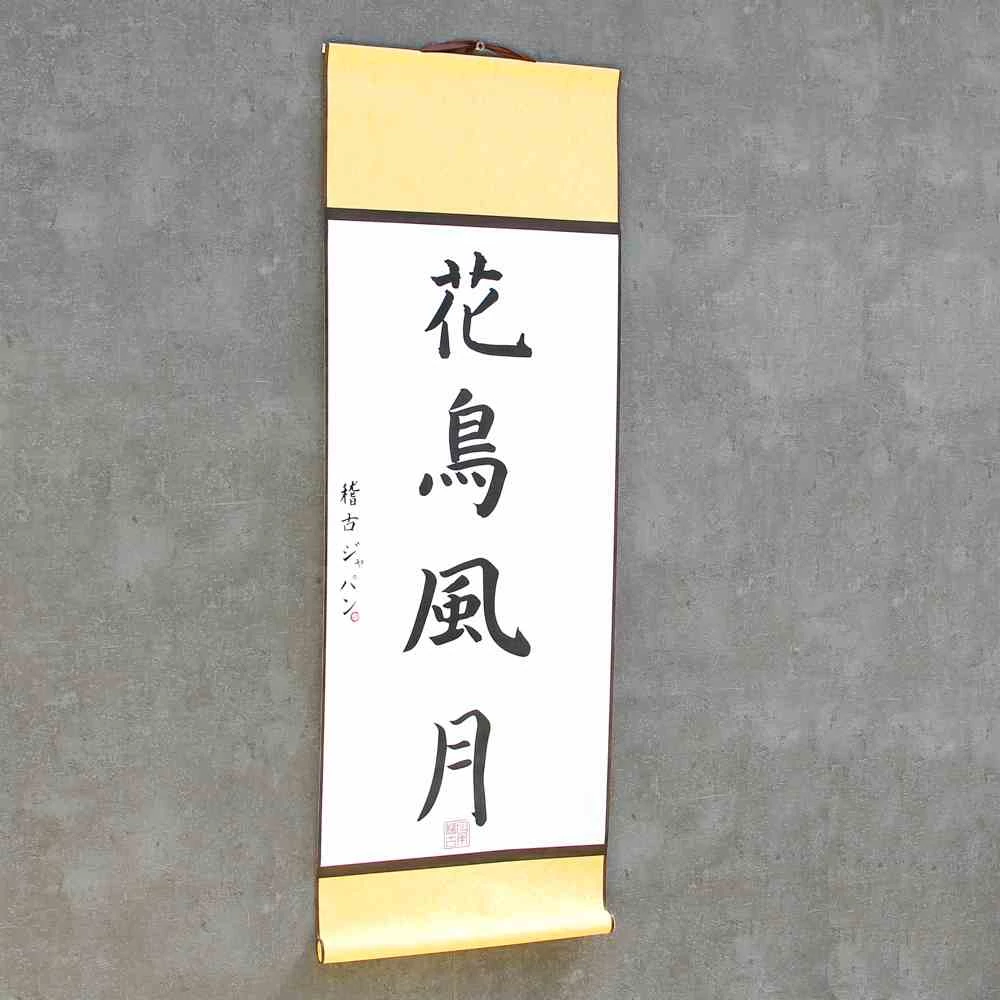 花鳥風月
稽古ジャパン